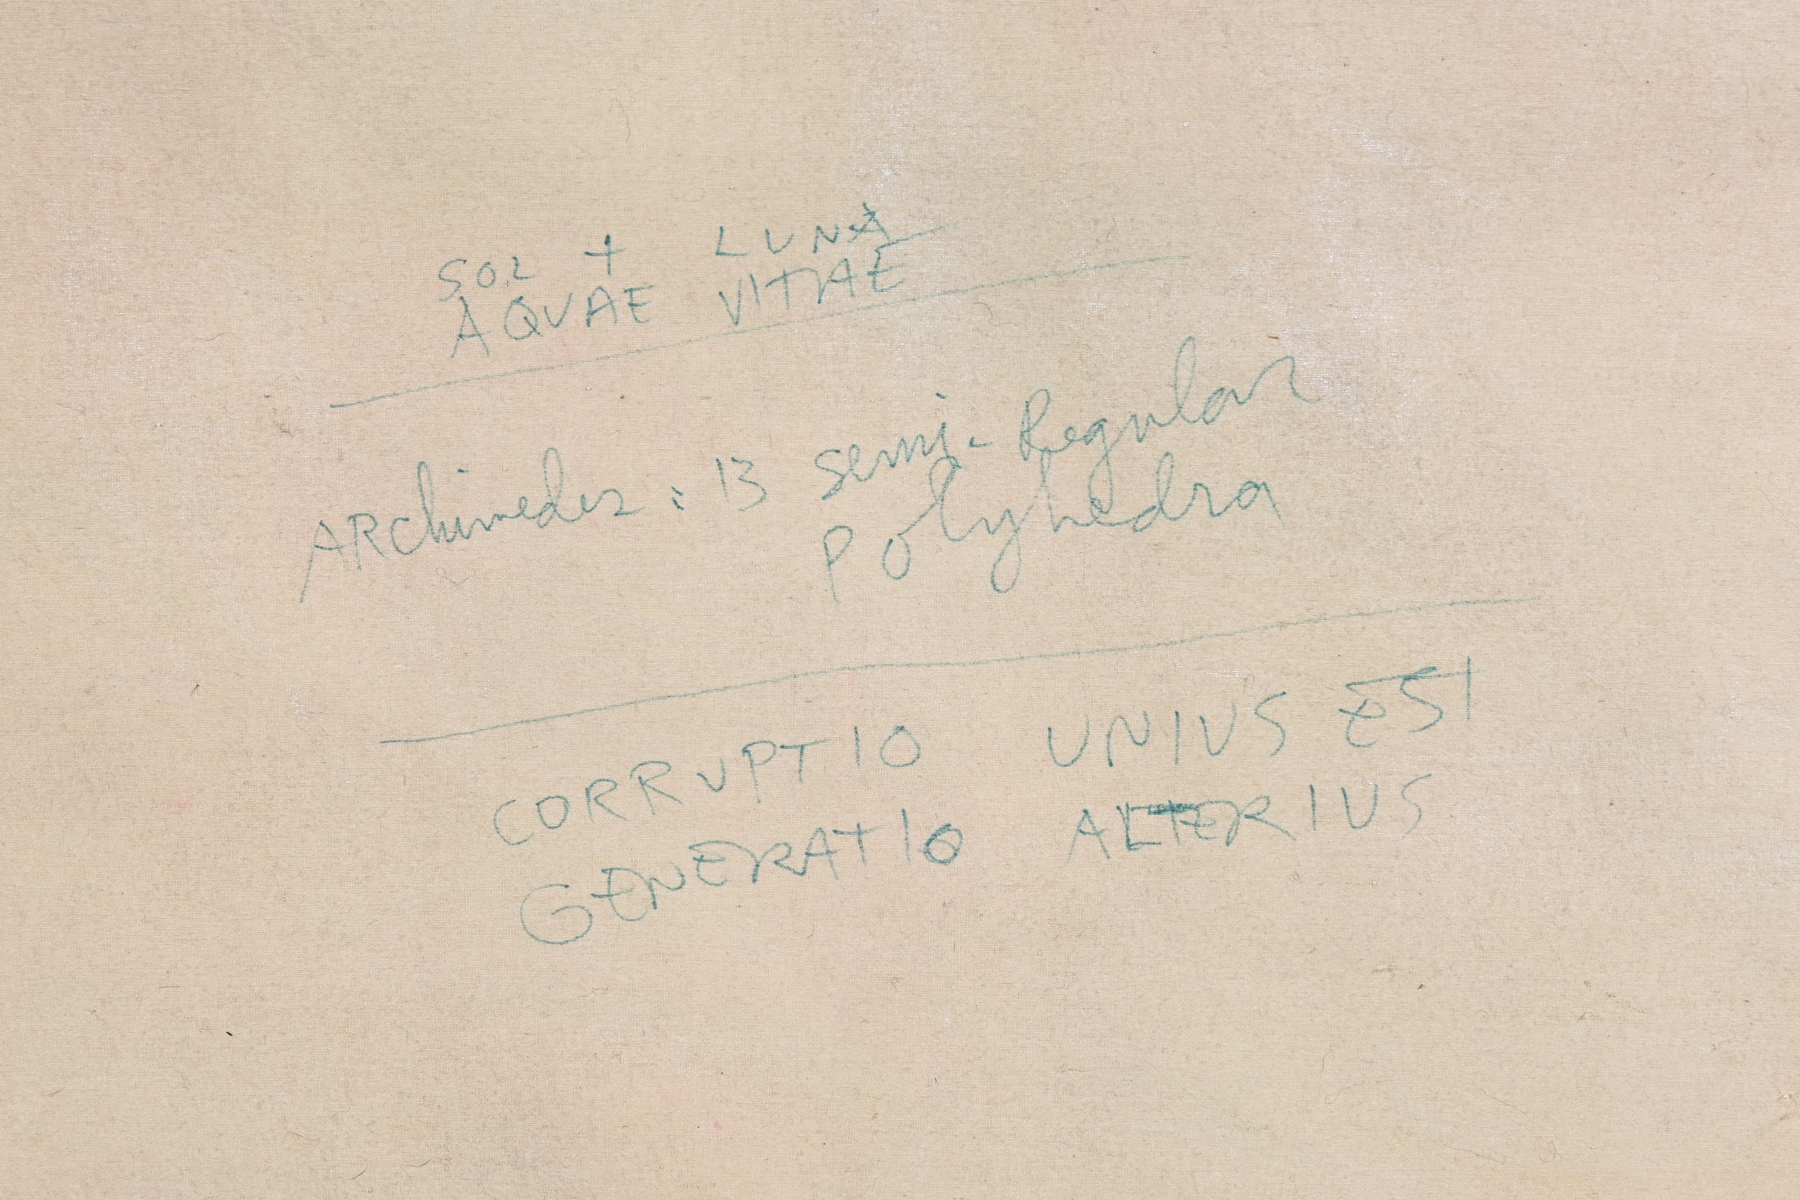 SOL + LUNA
AQVAE VITAE
ARchimedes : 13 semi-Regular
Polyhedra
CORRUPTIO UNIUS EST
GENERATIO ALTERIUS